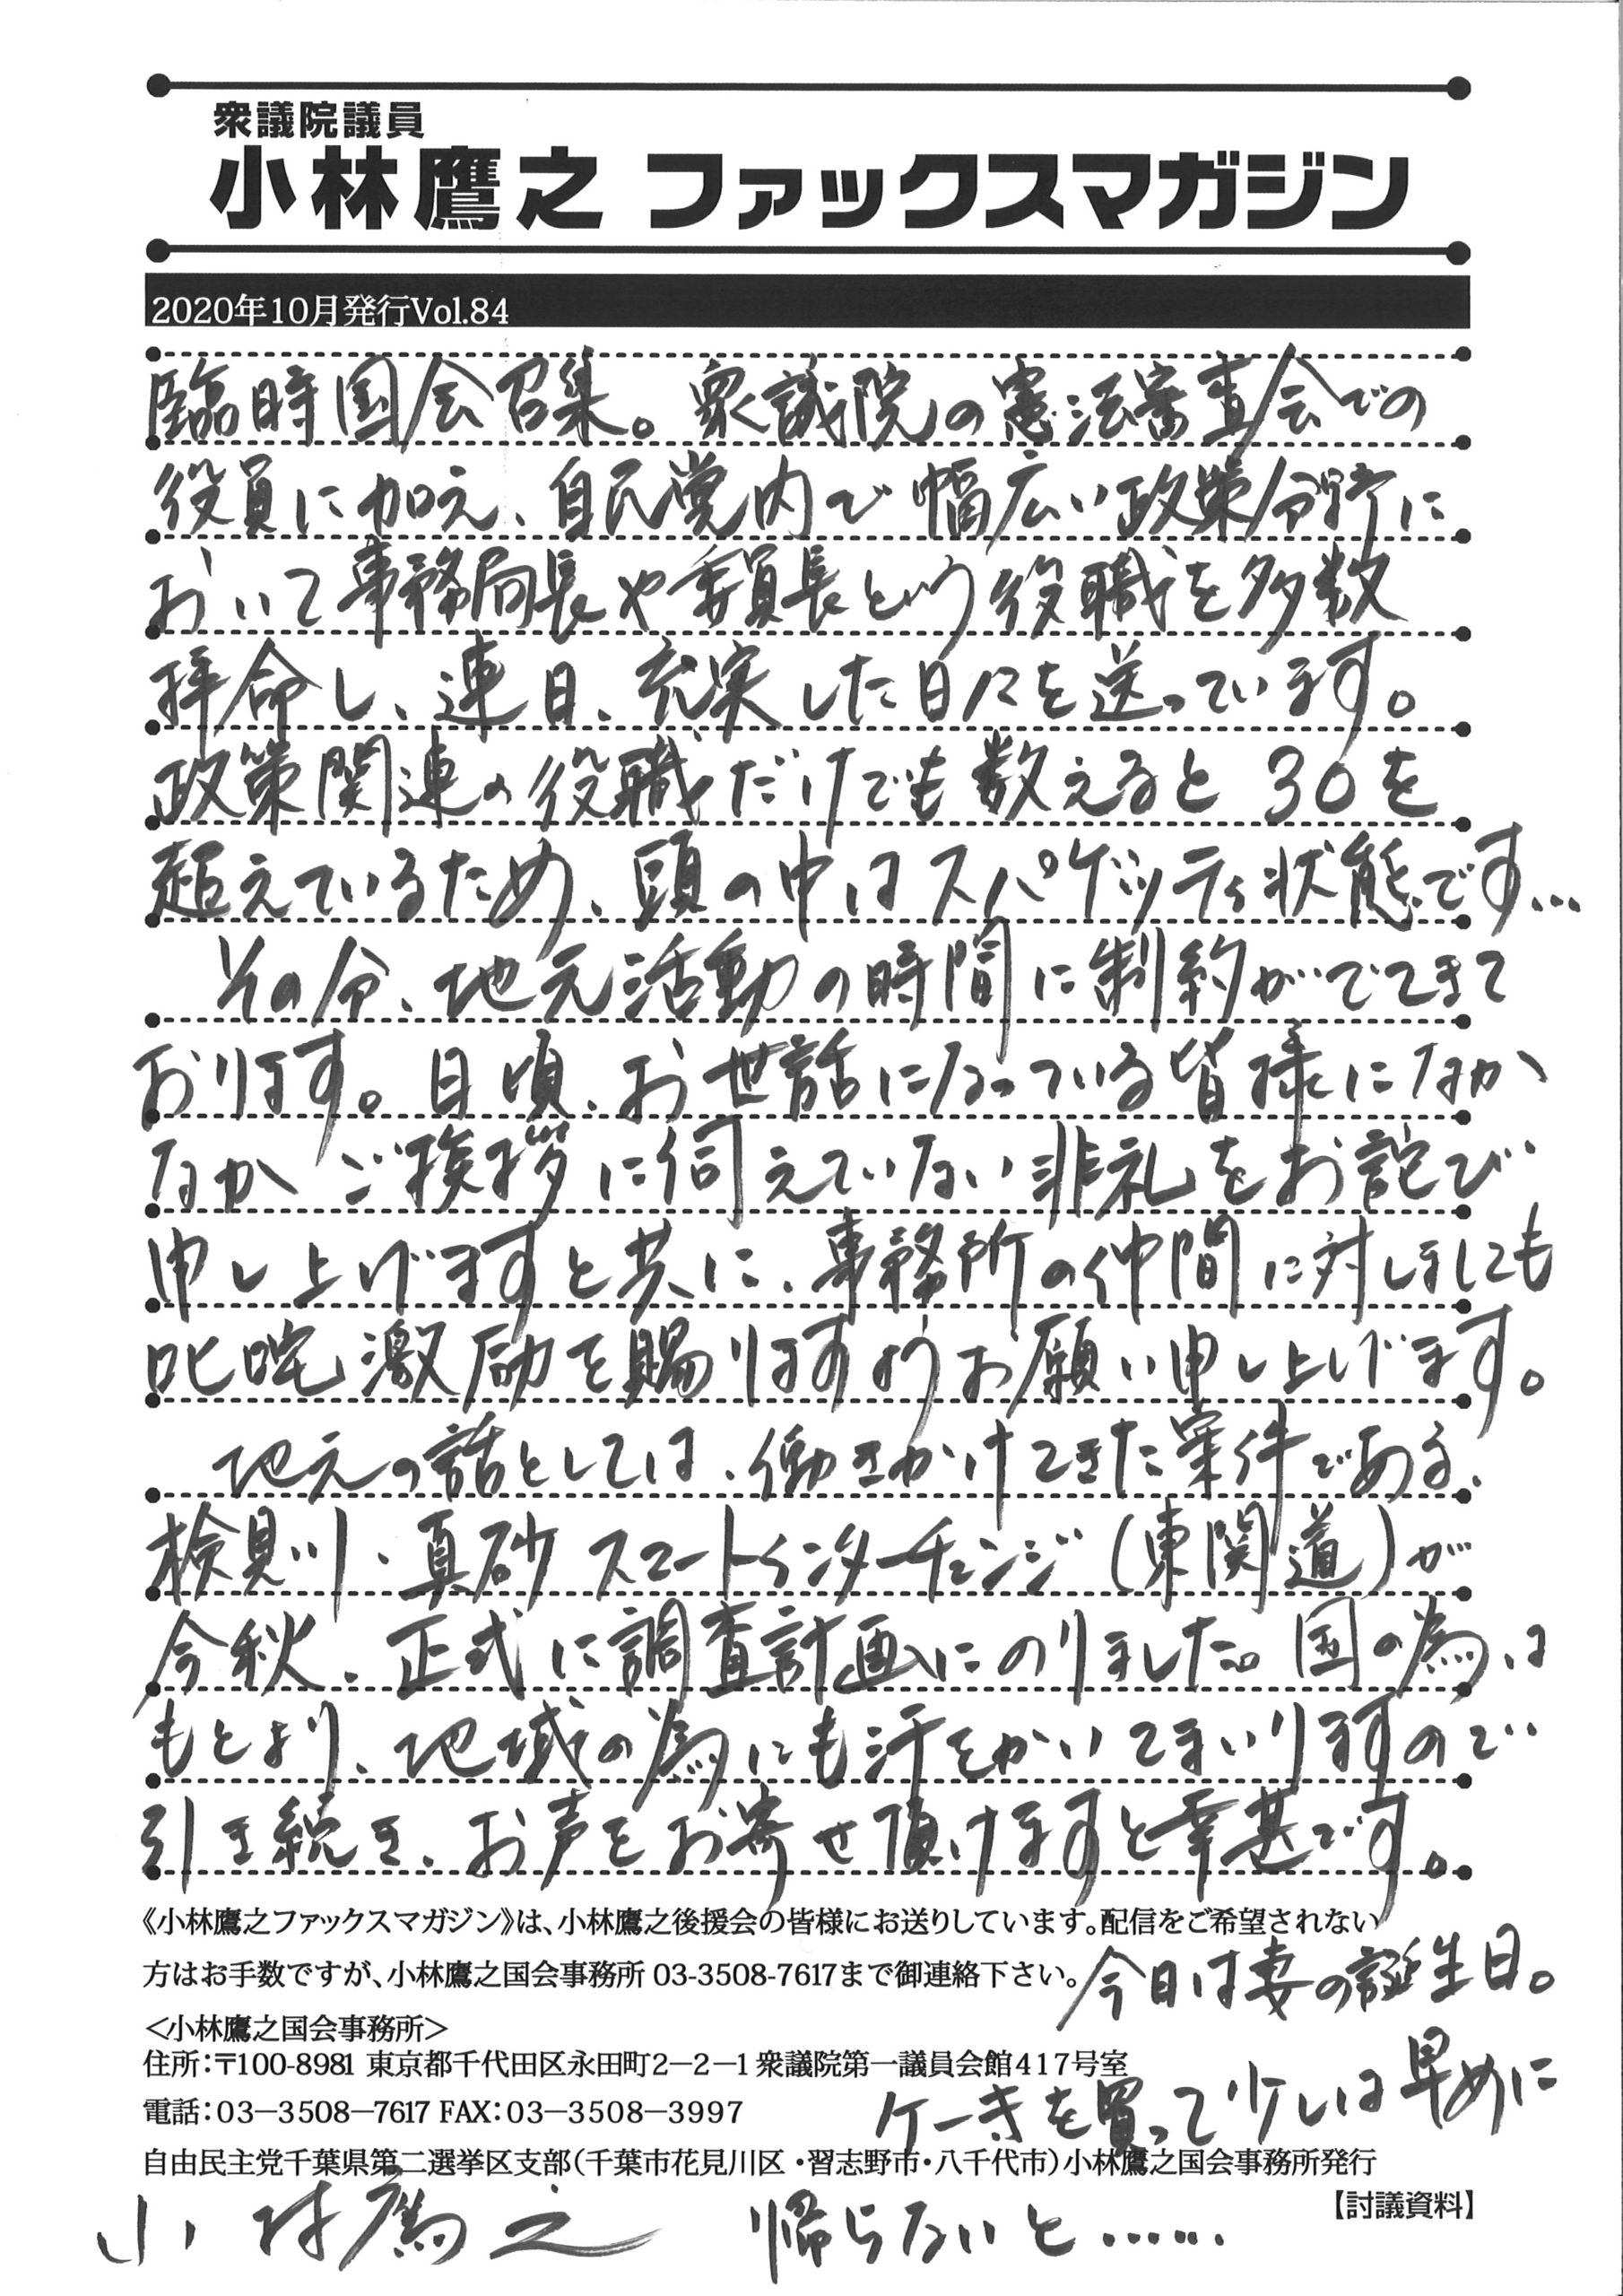 衆議院議員
小林鷹之 ファックスマガジン
2020年10月発行Vol.84
臨時国会召集。衆議院の憲法審査会での
役員に加え、自民党内で幅広い政策分野に
おいて事務局長や委員長という役職を多数
拝命し、連日、充実した日々を送っています。
政策関連の役職だけでも数えると30を
超えているため、頭の中はスパゲッティ状態です…
その分、地元活動の時間に制約がでてきて
おります。日頃、お世話になっている皆様になか
なかご挨拶に伺えていない非礼をお詫び
申し上げますと共に、事務所の仲間に対しましても
叱咤激励を賜りますようお願い申し上げます。
地元の話としては、働きかけてきた案件である、
検見川・真砂スマートインターチェンジ(東関道)が
今秋、正式に調査計画にのりました。国の為は
もとより、地域の為にも汗をかいてまいりますので
引き続き、お声をお寄せ頂けますと幸甚です。
《小林鷹之ファックスマガジン》は、小林鷹之後援会の皆様にお送りしています。配信をご希望されない
方はお手数ですが、小林鷹之国会事務所 03-3508-7617まで御連絡下さい。
今日は妻の誕生日。
<小林鷹之国会事務所>
住所：〒100-8981 東京都千代田区永田町2－2－1衆議院第一議員会館417号室
電話：03－3508－7617 FAX：03－3508－3997
ケーキを買って少しは早めに
自由民主党千葉県第二選挙区支部(千葉市花見川区・習志野市・八千代市)小林鷹之国会事務所発行
【討議資料】
小林鷹之
帰らないと……